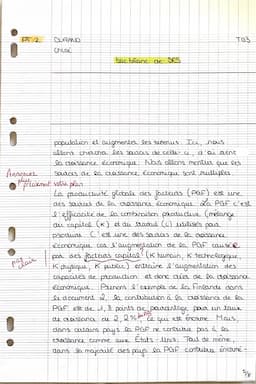 PT 2
DURAND
TG3
Chloé
bac blanc de SES
population et augmenter les revenus. Ici, nous
allons chercher les sources de celle-ci, d'où vient
la croissance économique. Nous allons montrer que les
sources de la croissance économique sont multiples.
Annoncez
plus précisément votre plan
La productivité globale des facteurs (PGF) est une
des sources de la croissance économique. La PGF c'est
l'efficacité de la combinaison productive (mélange
du capital (K) et du travail (L) utilisés pour
produire. C'est une des sources de la croissance
économique car l'augmentation de la PGF causée
par des facteurs capital (K humain, K technologique,
K physique, K public) entraîne l'augmentation des
pas clair
capacités de production et donc celle de la croissance
économique. Prenons l'exemple de la Finlande dans
le document 2, la contribution à la croissance de la
PGF est de 1,8 points de pourcentage pour un taux
de croissance de 2,2% ce qui est énorme. Mais
dans certains pays la PGF ne contribue pas à la
croissance comme aux États-Unis. Tout de même,
dans la majorité des pays la PGF contribue énormé-